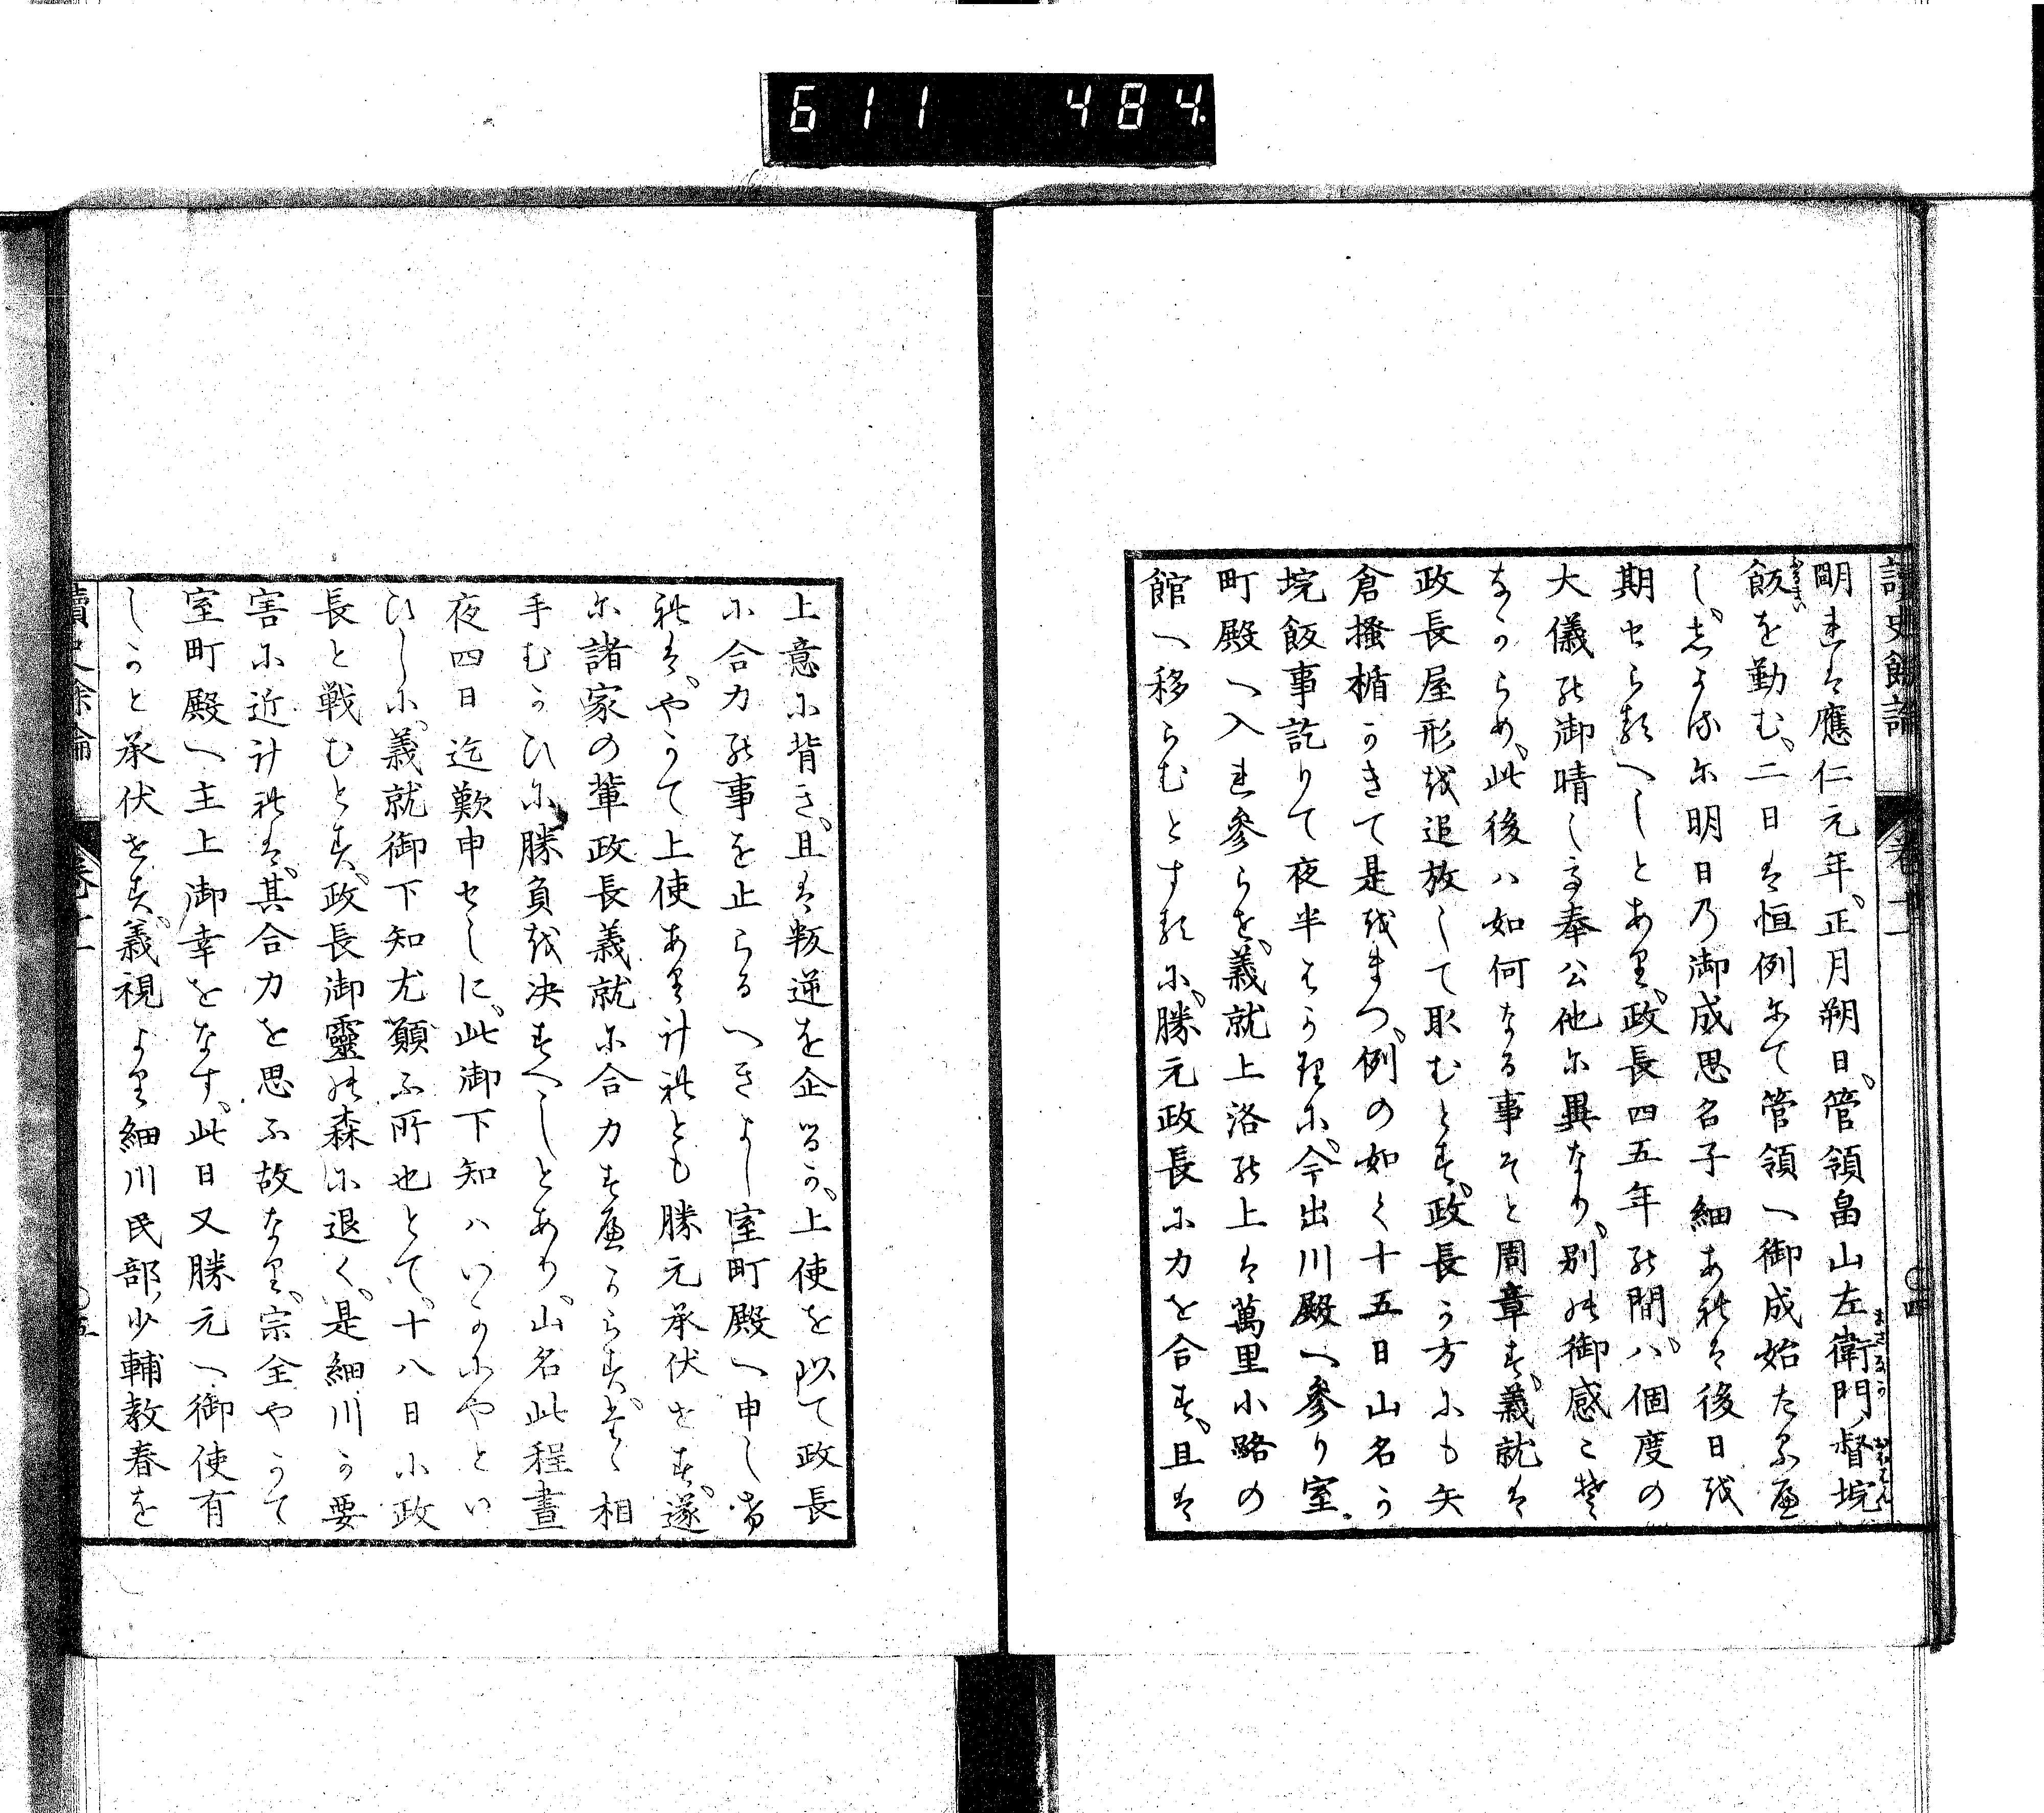 611 484
讀史餘論 卷十一 ○四
明れは應仁元年、正月朔日、管領畠山左衛門ノ督垸
飯を勤む、二日は恒例にて管領へ御成始たるへ
し、しかるに明日乃御成思召子細あれは後日を
期せらるへしとあり、政長四五年の間、ハ個度の
大儀の御晴し事奉公他に異なり、別の御感こそ
なからめ、此後ハ如何なる事そと周章す、義就は
政長屋形を追放して取むとす、政長か方にも矢
倉搔楯かきて是をまつ、例の如く十五日山名か
垸飯事訖りて夜半はかりに、今出川殿へ參り室
町殿へ入れ參らを、義就上洛の上は萬里小路の
館へ移らむとするに、勝元政長に力を合す、且は
上意に背き、且は叛逆を企るか、上使を以て政長
に合力の事を止らるへきよし室町殿へ申し
けれは、やかて上使ありけれとも勝元承伏せす、遂
に諸家の輩政長義就に合力すへからす、たゝ相
手むかひに勝負を決すへしとあり、山名此程晝
夜四日迄歎申せしに、此御下知ハいかにやとい
ひしに、義就御下知尤願ふ所也とて、十八日に政
長と戰むとす、政長御靈の森に退く、是細川か要
害に近けれは、其合力を思ふ故なり、宗全やかて
室町殿へ主上御幸をなす、此日又勝元へ御使有
しかと承伏せす、義視より細川民部ノ少輔教春を
讀史餘論 卷十一 ○五